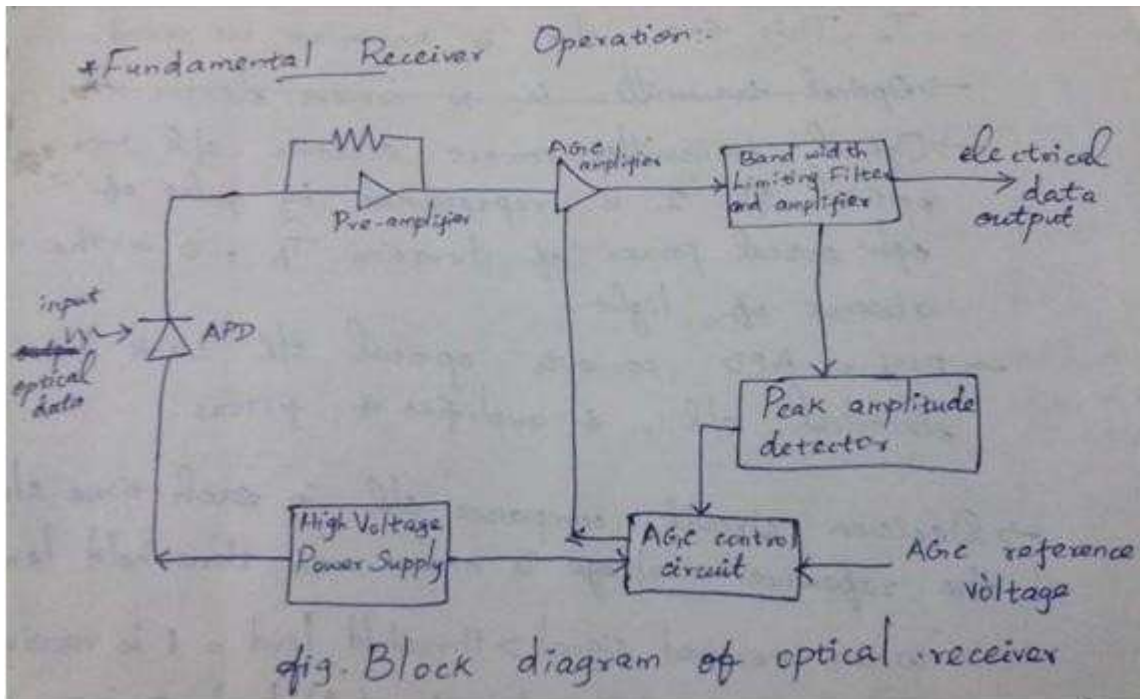 *Fundamental Receiver Operation:-
AGC
amplifier
Pre-amplifier
Band width
Limiting Filter
and amplifier
electrical
data
output
input
optical
data
APD
Peak amplitude
detector
High Voltage
Power Supply
AGC control
circuit
AGC reference
voltage
fig. Block diagram of optical receiver